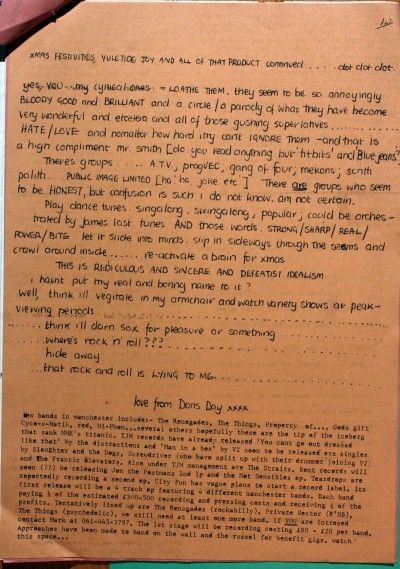 XMAS FESTIVITIES, YULETIDE JOY AND ALL OF THAT PRODUCT continued ..... dot dot dot.
yes, YOU - my cynical ones - LOATHE THEM. they seem to be so annoyingly
BLOODY GOOD and BRILLIANT and a circle/a parody of what they have become
very wonderful and etcetera and all of those gushing superlatives..........
HATE/LOVE and nomatter how hard i try can't IGNORE them - and that is
a high compliment mr. smith [do you read anything but 'titbits' and Blue jeans?
Theres groups ..... A.T.V., progVEC, gang of four, mekons, scritti
politti. PUBLIC IMAGE LIMITED [ha! ha, joke etc.] There are groups who seem
to be HONEST, but confusion is such i do not know. am not certain.
Play dance tunes. singalong. swingalong, popular; could be orches-
trated by james last tunes AND those words. STRONG/SHARP/REAL/
POWER/BITE let it slide into minds. slip in sideways through the seams and
crawl around inside ...... re-activate a brain for xmas
THIS IS REDICULOUS AND SINCERE AND DEFEATIST IDEALISM
i havnt put my real and boring name to it?
well, think ill vegitate in my armchair and watch variety shows at peak-
viewing periods
think ill darn sox for pleasure or something
....... where's rock 'n' roll???
hide away
...that rock and roll is LYING TO ME.
love from Doris Day xxxx
New bands in manchester include:- The Renegades, The Things, Property of...., Gods gift
Cyrcs-Matik, red, Hi-Phen...several others hopefully these are the tip of the iceberg
that sank NME's titanic, TJM records have already released 'You cant go out dressed
like that' by the distractions and 'Man in a box' by V2 soon to be released are singles
by Slaughter and the Dogs, Screwdriver (who have split up with their drummer joining V2)
and The Frantic Elevators. Also under TJM management are The Straits. Rent records will
seen (??) be releasing Jon the Postmans 2nd lp and the Not Sensibles ep. Teardrops are
reportedly recording a second ep. City Fun has vague plans to start a record label, its
first release will be a 4 track ep featuring 4 different manchester bands. Each band
paying ¼ of the estimated £300-500 recording and pressing costs and receiving ¼ of the
profits. Tentatively lined up are The Renegades (rockabilly), Private Sector (R'NB),
The Things (psychedelic), we still need at least one more band. If YOU are intresed
contact Mark at 061-445-3797. The 1st stage will be recording casting £80 - £20 per band.
Approaches have been made to band on the wall and the russel for benefit gigs. watch
this space...